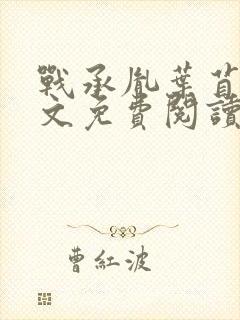 戰承胤葉苜
文免費閱讀
曹紅波